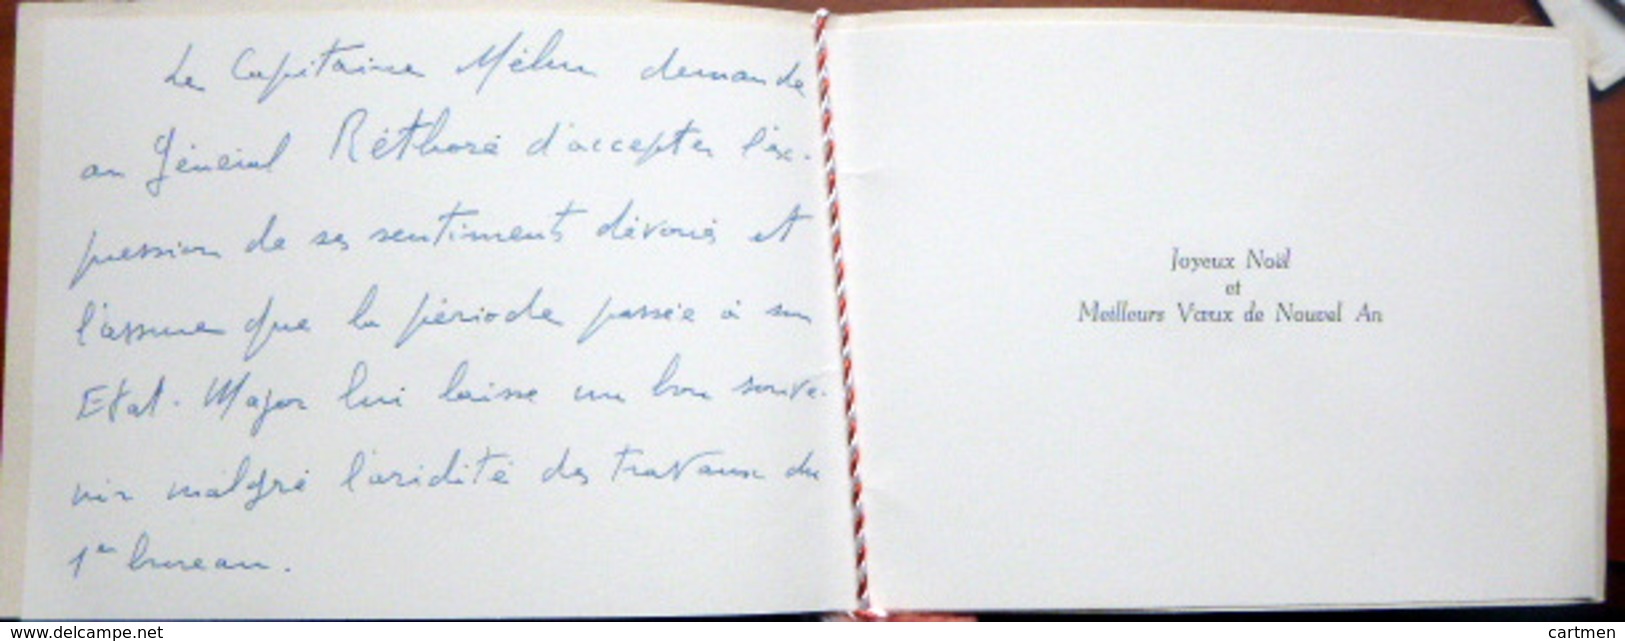 Le Capitaine Mélun demande
au Général Réthoré d'accepter l'ex-
pression de ses sentiments dévoués et
l'assure que la période passée à son
Etat-Major lui laisse un bon souve-
nir malgré l'aridité des travaux du
1er bureau.
Joyeux Noël
et
Meilleurs Vœux de Nouvel An
www.delcampe.net
cartmen